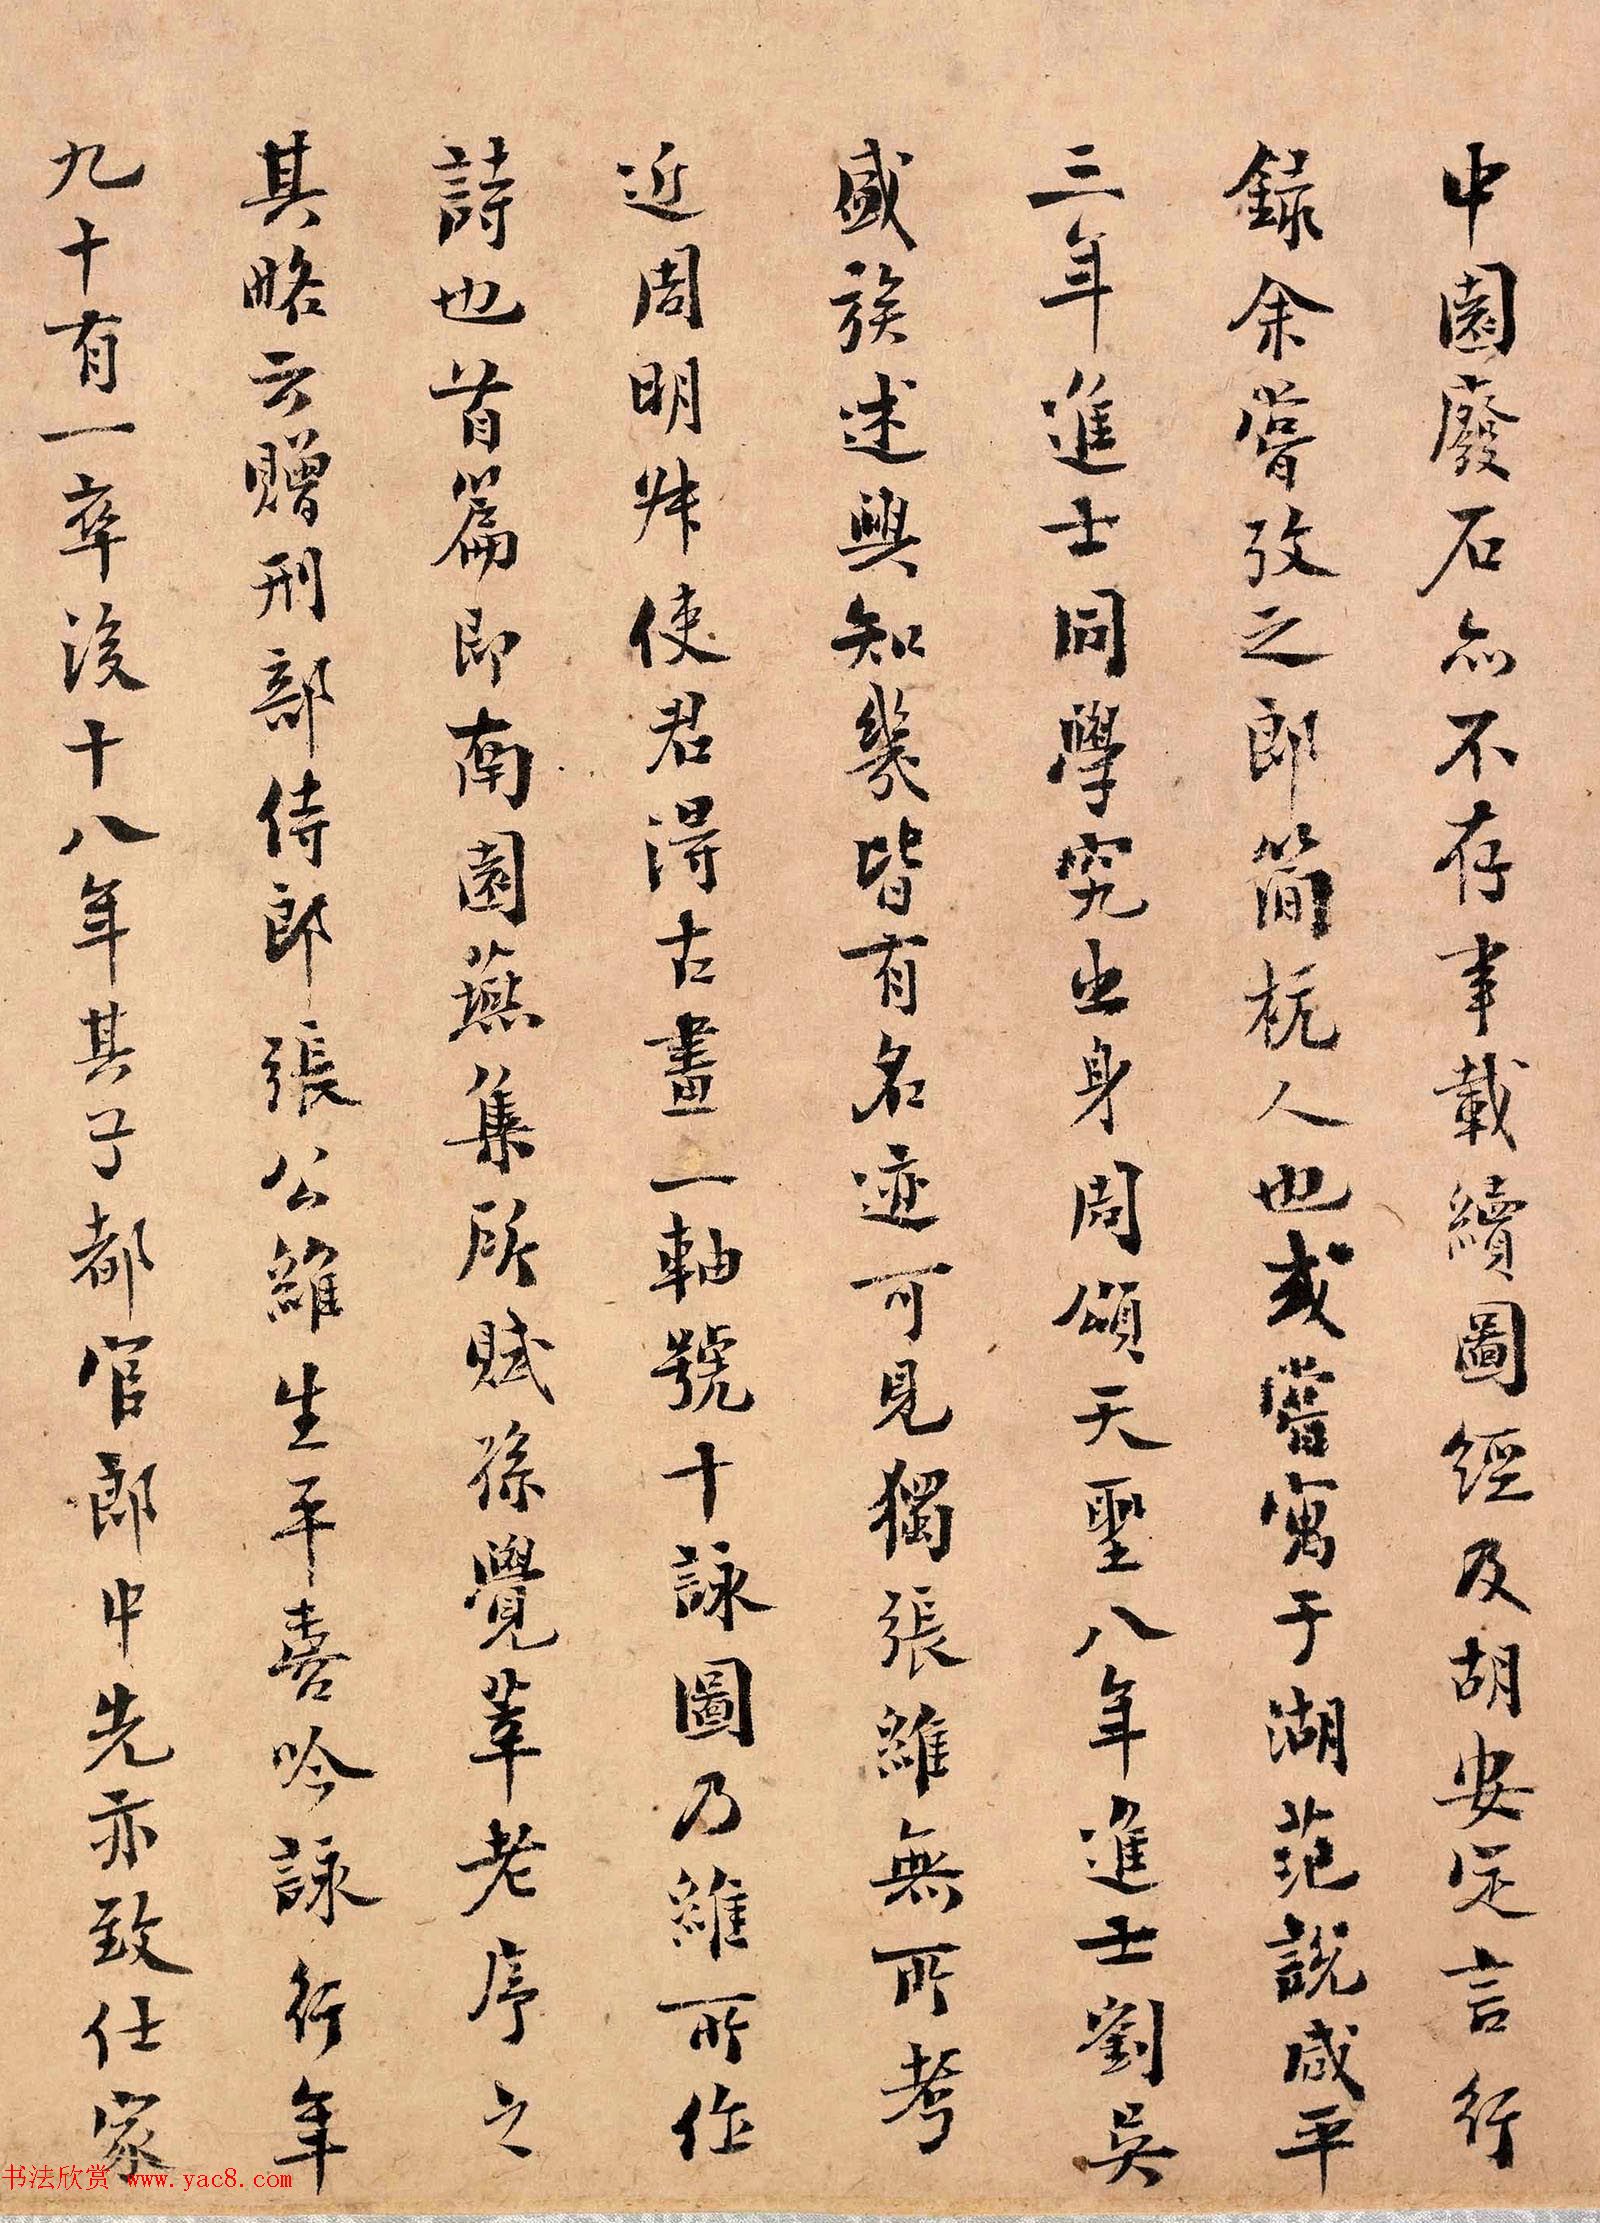 中園廢石亦不存事載續圖經及胡安定言行
錄余嘗攷之郎簡杭人也或嘗寓于湖范說咸平
三年進士同學究出身周頌天聖八年進士劉吳
盛族述與知幾皆有名迹可見獨張維無所考
近周明叔使君得古畫一軸號十詠圖乃維所作
詩也首篇即南園燕集所賦孫覺莘老序之
其略云贈刑部侍郎張公維生平喜吟詠行年
九十有一卒後十八年其子都官郎中先亦致仕家
书法欣赏 www.yac8.com